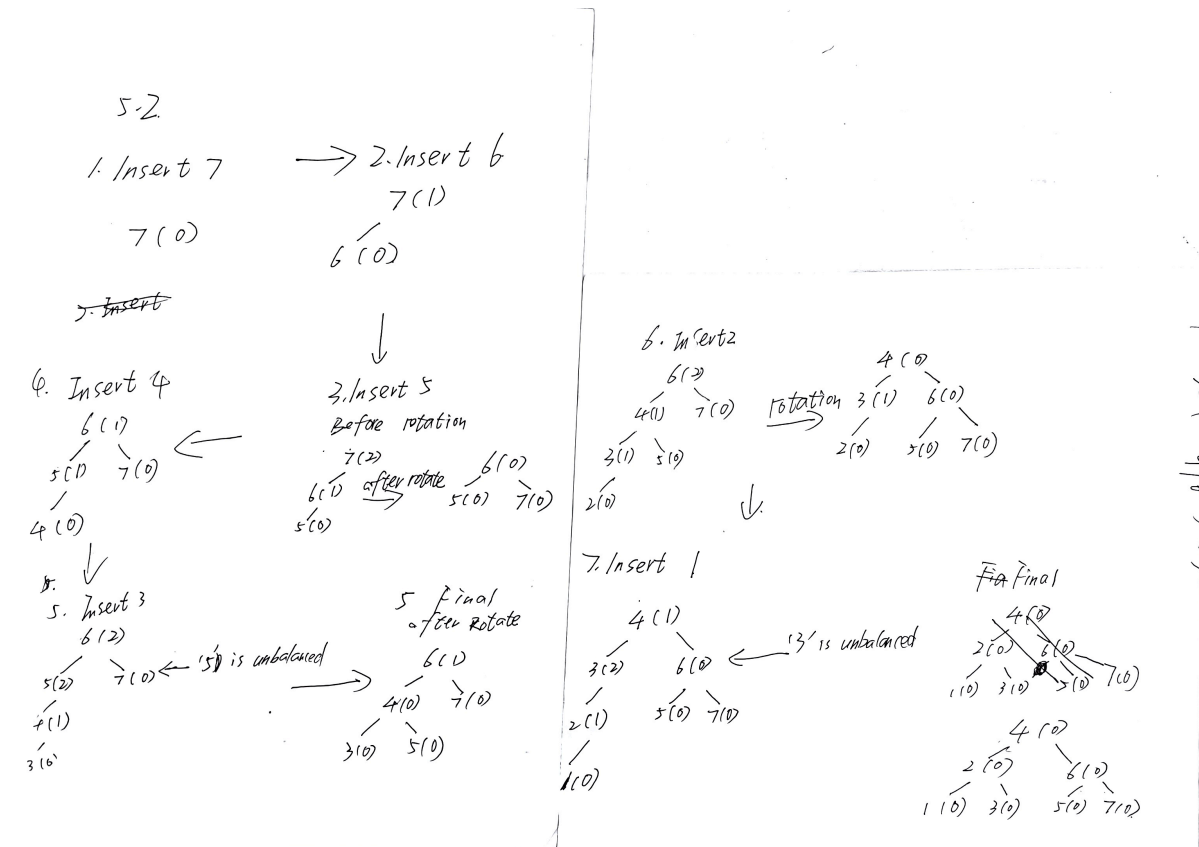 5.2
1. Insert 7
7(0)
3. Insert
2. Insert 6
7(1)
6(0)
3. Insert 5
Before rotation
7(2)
6(1)
5(0)
after rotate
6(0)
5(0) 7(0)
4. Insert 4
6(1)
5(1) 7(0)
4(0)
5. Insert 3
6(2)
5(2) 7(0)
4(1)
3(0)
'5' is unbalanced
5 Final
after Rotate
6(1)
4(0) 7(0)
3(0) 5(0)
6. Insert 2
6(2)
4(1) 7(0)
3(1) 5(0)
2(0)
rotation
4(0)
3(1) 6(0)
2(0) 5(0) 7(0)
7. Insert 1
4(1)
3(2) 6(0)
2(1) 5(0) 7(0)
1(0)
'3' is unbalanced
Final
4(0)
2(0) 6(0)
1(0) 3(0) 5(0) 7(0)
4(0)
2(0) 6(0)
1(0) 3(0) 5(0) 7(0)